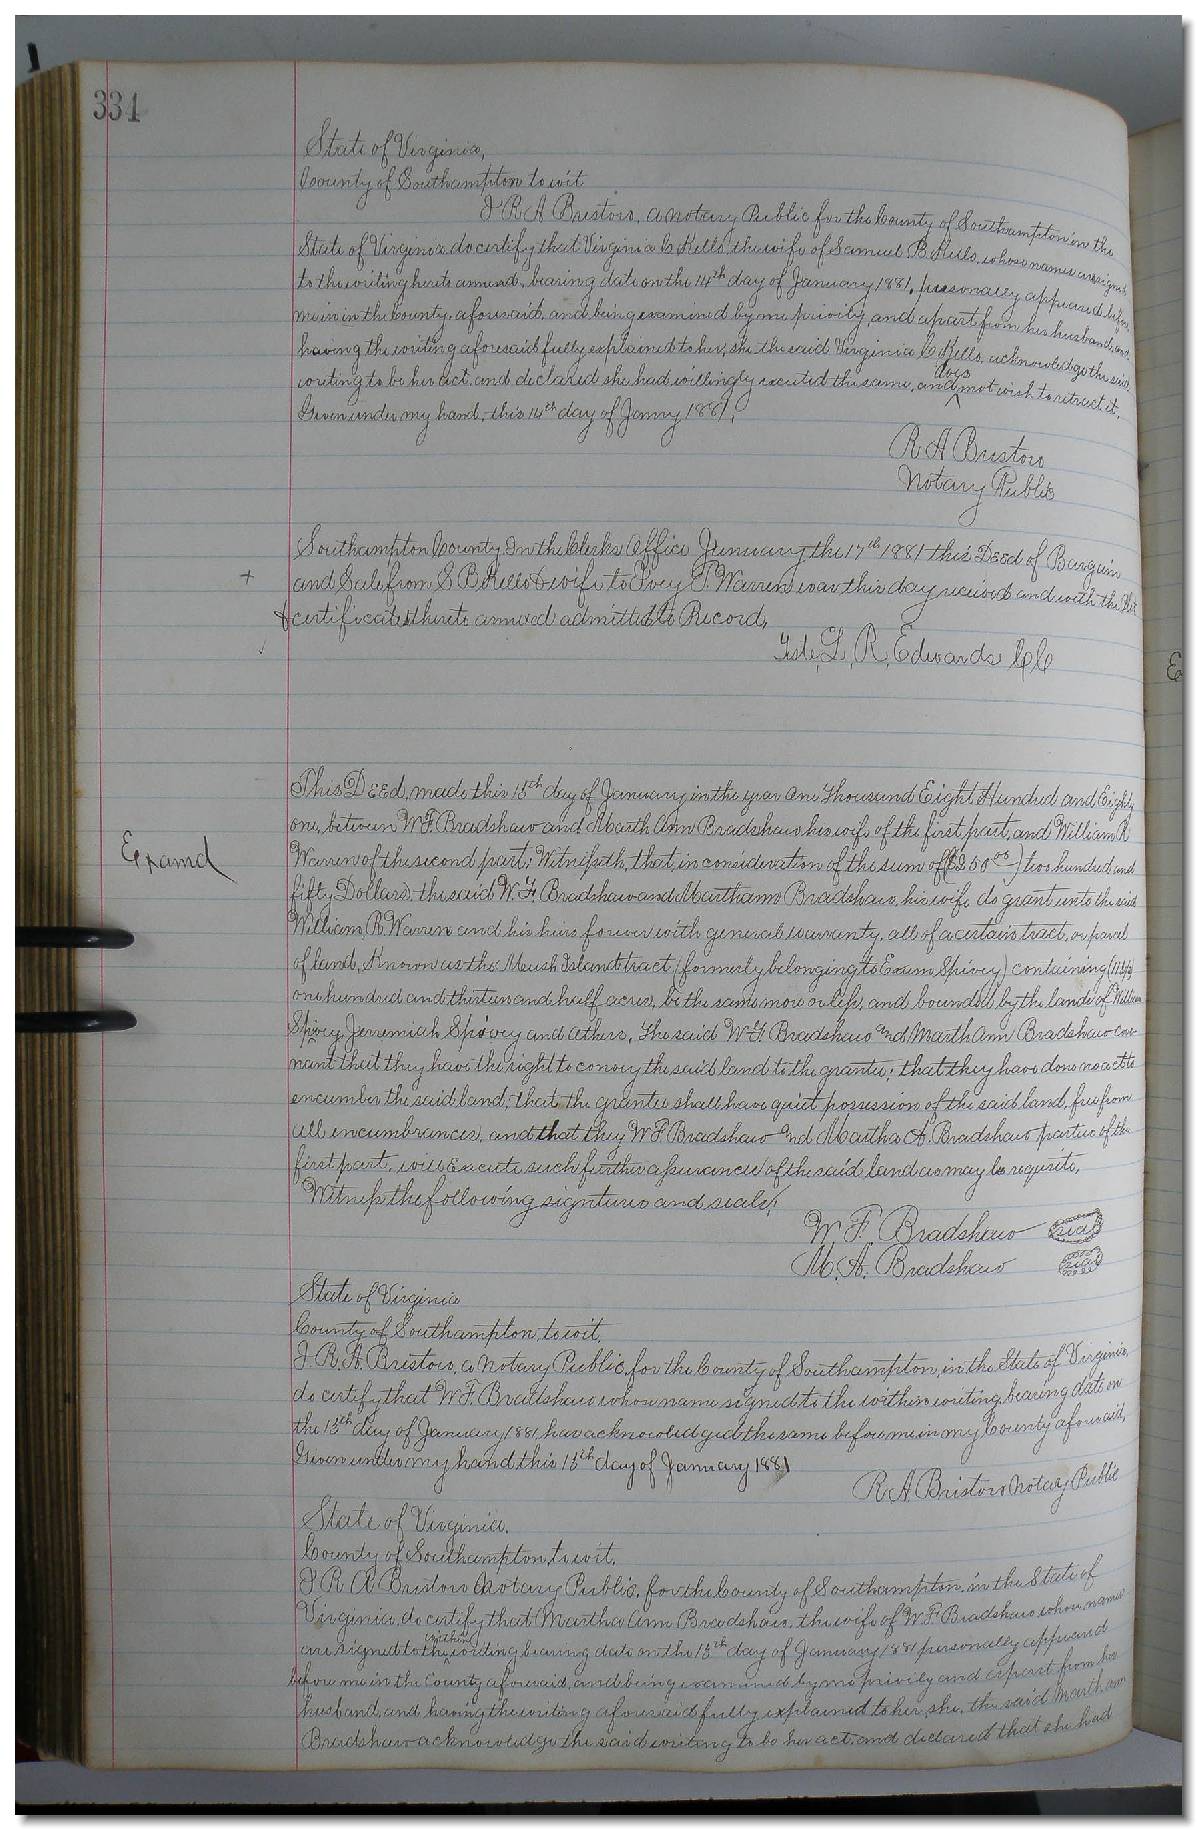 334
State of Virginia,
County of Southampton to wit
I R A Bristow, a notary Public for the County of Southampton in the
State of Virginia do certify that Virginia C Kello, the wife of Samuel B. Kello, whose names are signed
to the writing hereto annexed, bearing date on the 14th day of January 1881, personally appeared before
me in the County aforesaid, and being examined by me privily and apart from her husband, and
having the writing aforesaid fully explained to her, she the said Virginia C Kello, acknowledge the said
writing to be her act, and declared she had willingly executed the same, and does not wish to retract it.
Given under my hand, this 14th day of Janry 1881.
R A Bristow
Notary Public
Southampton County In the Clerks Office January the 17th 1881 this Deed of Bargain
+ and Sale from S B Kello & wife to T. Warren was this day received and with the
certificates thereto annexed admitted to Record,
Teste, L, R, Edwards CC
This Deed, made this 15th day of January in the year One Thousand Eight Hundred and Eighty
one, between W.F. Bradshaw and Marth Ann Bradshaw his wife of the first part, and William R
Examd
Warren of the second part; Witnesseth, that in consideration of the sum of ($250 00) two hundred and
fifty Dollars, the said W. F. Bradshaw and Marthann Bradshaw, his wife do grant unto the said
William R Warren and his heirs forever with general warranty, all of a certain tract, or parcel
of land, Known as the Marsh Island tract (formerly belonging to Exum Spivey) containing (113½)
one hundred and thirteen and half acres, be the same more or less, and bounded by the lands of William
Spivey, Jeremiah Spivey and others, The said W. F. Bradshaw and Marth Ann Bradshaw cove-
nant that they have the right to convey the said land to the grantee; that they have done no act to
encumber the said land; that the grantee shall have quiet possession of the said land, free from
all encumbrances, and that they W F Bradshaw and Martha A. Bradshaw parties of the
first part, will execute such further assurances of the said land as may be requisite,
Witness the following signtures and seals;
W. F. Bradshaw seal
M. A. Bradshaw seal
State of Virginia
County of Southampton to wit,
I. R. A. Bristow, a Notary Public, for the County of Southampton, in the State of Virginia,
do certify that W. F. Bradshaw whose name signed to the within writing, bearing date on
the 15th day of January 1881 has acknowledged the same before me in my County aforesaid,
Given under my hand this 15th day of January 1881
R A Bristow Notary Public
State of Virginia.
County of Southampton, to wit.
I R A Bristow Notary Public, for the County of Southampton, in the State of
Virginia, do certify that Martha Ann Bradshaw, the wife of W. F. Bradshaw whose names
are signed to the within writing bearing date on the 15th day of January 1881 personally appeard
before me in the County aforesaid, and being examined by me privily and apart from her
husband, and having the writing aforesaid fully explained to her, she, the said Marth ann
Bradshaw acknowledge the said writing to be her act, and declared that she had